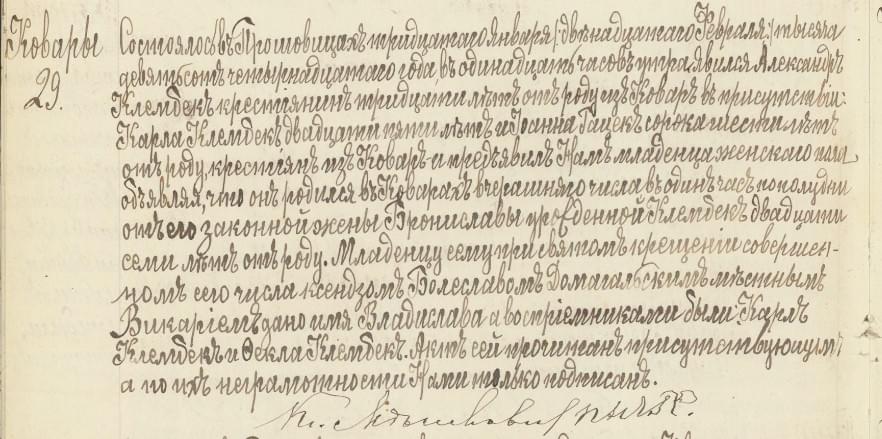 Ковары
29.
Состоялось въ Прошовицахъ тридцатаго Января /:двѣнадцатаго Февраля:/ тысяча
девятьсотъ четырнадцатаго года въ одинадцать часовъ утра, явился Александръ
Клембекъ крестіянинъ тридцати лѣтъ отъ роду изъ Коваръ въ присутствіи:
Карла Клембекъ двадцати пяти лѣтъ и Іоанна Гацекъ сорока шести лѣтъ
отъ роду, крестіянъ изъ Коваръ и предъявилъ Намъ младенца женскаго пола
объявляя, что онъ родился въ Коварахъ вчерашняго числа въ одинъ часъ пополудни
отъ его законной жены Брониславы урожденной Клембекъ двадцати
семи лѣтъ отъ роду. Младенцу сему при святомъ крещеніи совершен-
номъ сего числа ксендзомъ Болеславомъ Домагальскимъ мѣстнымъ
Викаріемъ дано имя Владислава а воспріемниками были: Карлъ
Клембекъ и Ѳекла Клембекъ. Актъ сей прочитанъ присутствующимъ
а по ихъ неграмотности Нами только подписанъ.
Кс.